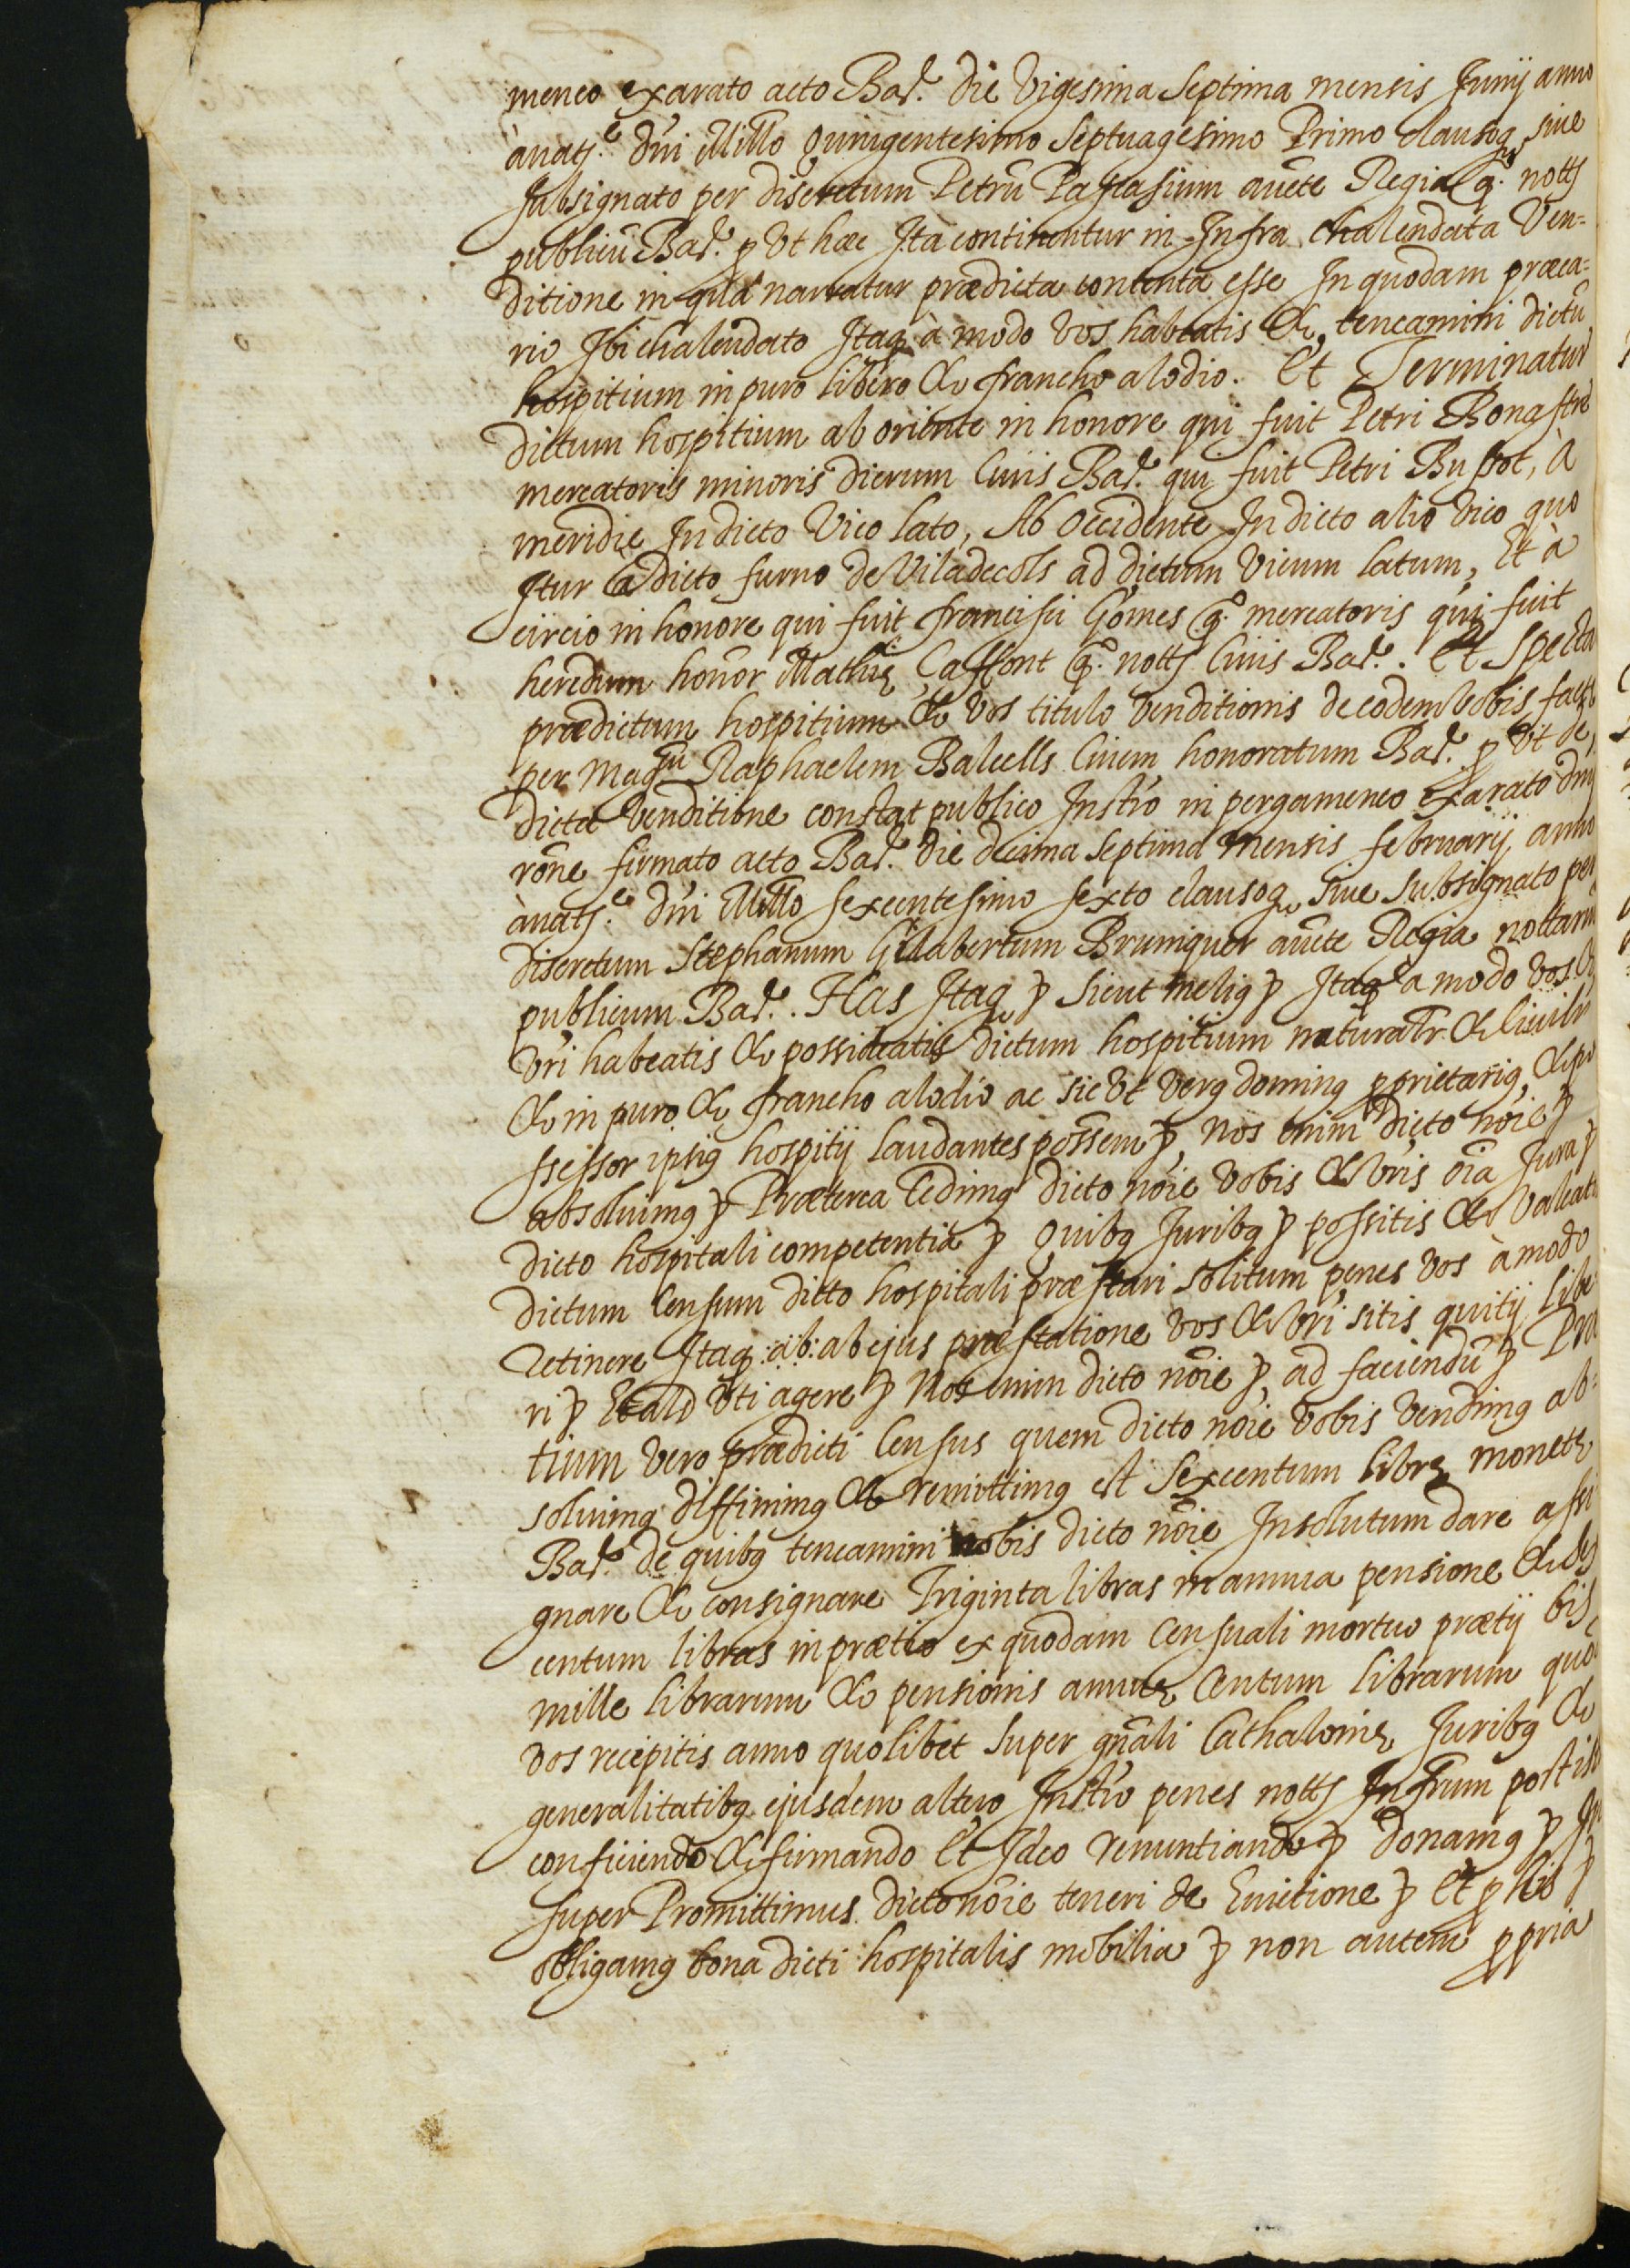 meneo exarato acto Bar.ᵉ die vigesima septima mensis Junij anno
à natᵗ.ᵉ dñi Millo quingentesimo septuagesimo Primo clausoq₃ sive
subsignato per discretum Petrũ Pascasium aucte Regia q.º nottˢ
publicũ Bar.ᵉ ꝑ Ut hæc Ita continentur in Infra chalendata Ven=
ditione in qua narratur prædicta contenta esse In quodam præca=
rio Ibi chalendato Itaq₃ à modo vos habeatis & teneamini dictũ
hospitium in puro libero & francho alodio. Et Terminatur
dictum hospitium ab oriente in honore qui fuit Petri Bonastre
mercatoris minoris dierum Civis Bar.ᵉ qui fuit Petri Busot, à
meridie In dicto Vico lato, Ab occidente In dicto alio vico quo
Itur a dicto furno de Viladecols ad dictum Vicum latum, Et à
circio in honore qui fuit francisci Gomes q.º mercatoris qui fuit
heredum honor Mathię Çaffont q.º nottˢ Civis Bar.ᵉ. Et Specta
prædictum hospitium & vos titulo venditionis de eodem vobis factę
per Mag.ᶜᵘ Raphaelem Balcells Civem honoratum Bar.ᵉ ꝑ Ut de
dicta venditione constat publico Instro in pergameneo exarato dñi
rõne firmato acto Bar.ᵉ die decima septima mensis februarij anno
à natᵗ.ᵉ dñi Millo sexcentesimo sexto clausoq₃ sive subsignato per
discretum Stephanum Gilabertum Bruniquer aucte Regia nottariũ
publicum Bar.ᵉ. Has Itaq₃ ꝑ Sicut meliꝰ ꝑ Itaq₃ a modo vos &
vri habeatis & possideatis dictum hospitium naturalr & Civilr
& in puro & francho alodio ac sic Ut verꝰ dominꝰ ꝓprietariꝰ, & po
ssessor ipsiꝰ hospitij laudantes possem ꝑ, nos enim dicto nõie ꝑ
absolvimꝰ ꝑ Præterea Cedimꝰ dicto nõie vobis & vris oĩa Jura ꝑ
dicto hospitali competentia ꝑ Quibꝰ Juribꝰ ꝑ possitis & valeatis
dictum Censum dicto hospitali præstari solitum penes vos à modo
retinere Itaq₃ :ab: ab ejus præstatione vos & vri sitis quitij libe
ri ꝑ Et alˢ Uti agere ꝑ Nos enim dicto nõie ꝑ, ad faciendũ ꝑ Præ
tium vero prædicti Census quem dicto nõie vobis vendimꝰ ab=
solvimꝰ diffinimꝰ & remittimꝰ est sexcentum librę monetę
Bar.ᵉ de quibꝰ teneamini nobis dicto nõie In solutum dare assi
gnare & consignare Triginta libras in annua pensione & sex
centum libras in prætio ex quodam Censuali mortuo prætij bis
mille librarum & pensionis annuę Centum librarum quod
vos recipitis anno quolibet super gñali Cathalonię Juribꝰ &
generalitatibꝰ ejusdem altero Instro penes nottˢ Infrum post istud
conficiendo & firmando Et Ideo renuntiando ꝑ donamꝰ ꝑ In
super Promittimus dicto nõie teneri de Evictione ꝑ Et ꝑ his ꝑ
obligamꝰ bona dicti hospitalis mobilia ꝑ non autem ꝓpria